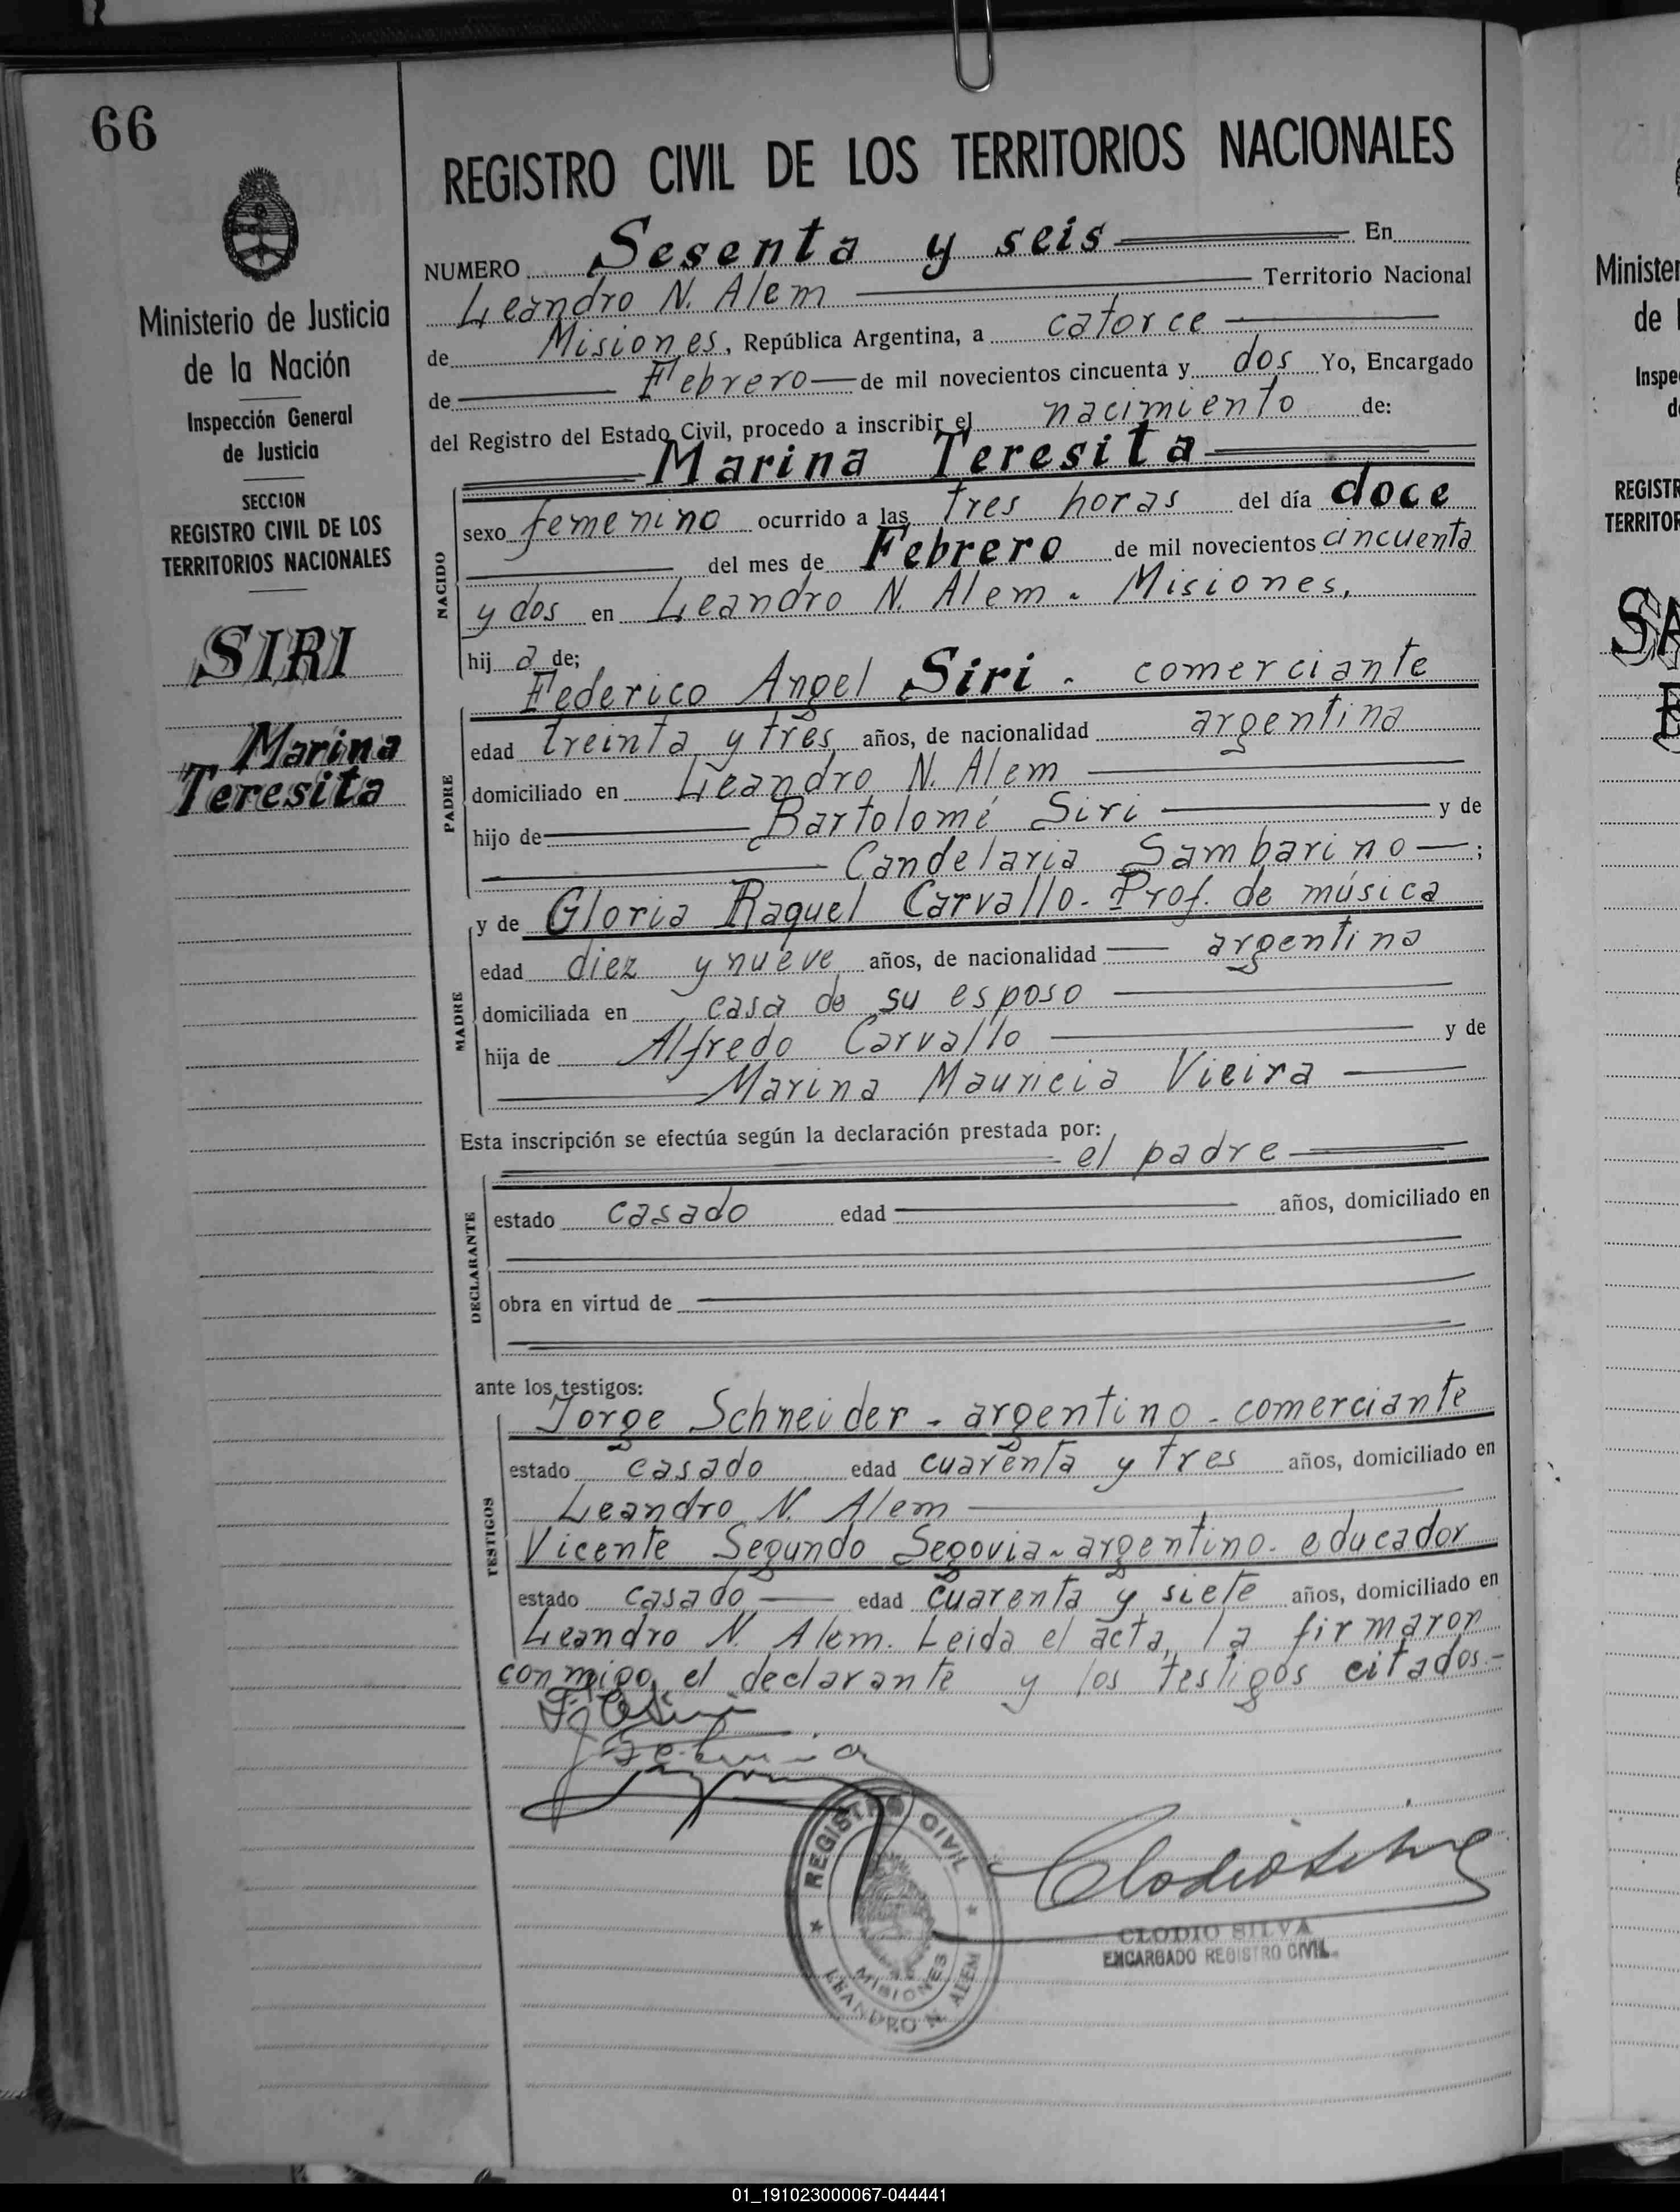 66
Ministerio de Justicia
de la Nación
Inspección General
de Justicia
SECCION
REGISTRO CIVIL DE LOS
TERRITORIOS NACIONALES
SIRI
Marina
Teresita
REGISTRO CIVIL DE LOS TERRITORIOS NACIONALES
NUMERO Sesenta y seis En
Leandro N. Alem Territorio Nacional
de Misiones, República Argentina, a catorce
de Febrero de mil novecientos cincuenta y dos Yo, Encargado
del Registro del Estado Civil, procedo a inscribir el nacimiento de:
Marina Teresita
NACIDO
sexo femenino ocurrido a las tres horas del día doce
del mes de Febrero de mil novecientos cincuenta
y dos en Leandro N. Alem - Misiones,
hij a de;
Federico Angel Siri - comerciante
PADRE
edad treinta y tres años, de nacionalidad argentina
domiciliado en Leandro N. Alem
hijo de Bartolomé Siri y de
Candelaria Sambarino ;
y de Gloria Raquel Carvallo - Prof. de música
MADRE
edad diez y nueve años, de nacionalidad argentina
domiciliada en casa de su esposo
hija de Alfredo Carvallo y de
Marina Mauricia Vieira
Esta inscripción se efectúa según la declaración prestada por:
el padre
DECLARANTE
estado casado edad años, domiciliado en
obra en virtud de
ante los testigos:
Jorge Schneider - argentino - comerciante
TESTIGOS
estado casado edad cuarenta y tres años, domiciliado en
Leandro N. Alem
Vicente Segundo Segovia - argentino - educador
estado casado edad cuarenta y siete años, domiciliado en
Leandro N. Alem. Leida el acta, la firmaron
conmigo el declarante y los testigos citados.-
REGISTRO CIVIL
MISIONES
LEANDRO N. ALEM
Clodio Silva
CLODIO SILVA
ENCARGADO REGISTRO CIVIL
Minister
de
Inspe
d
REGISTR
TERRITOR
SA
01_191023000067-044441